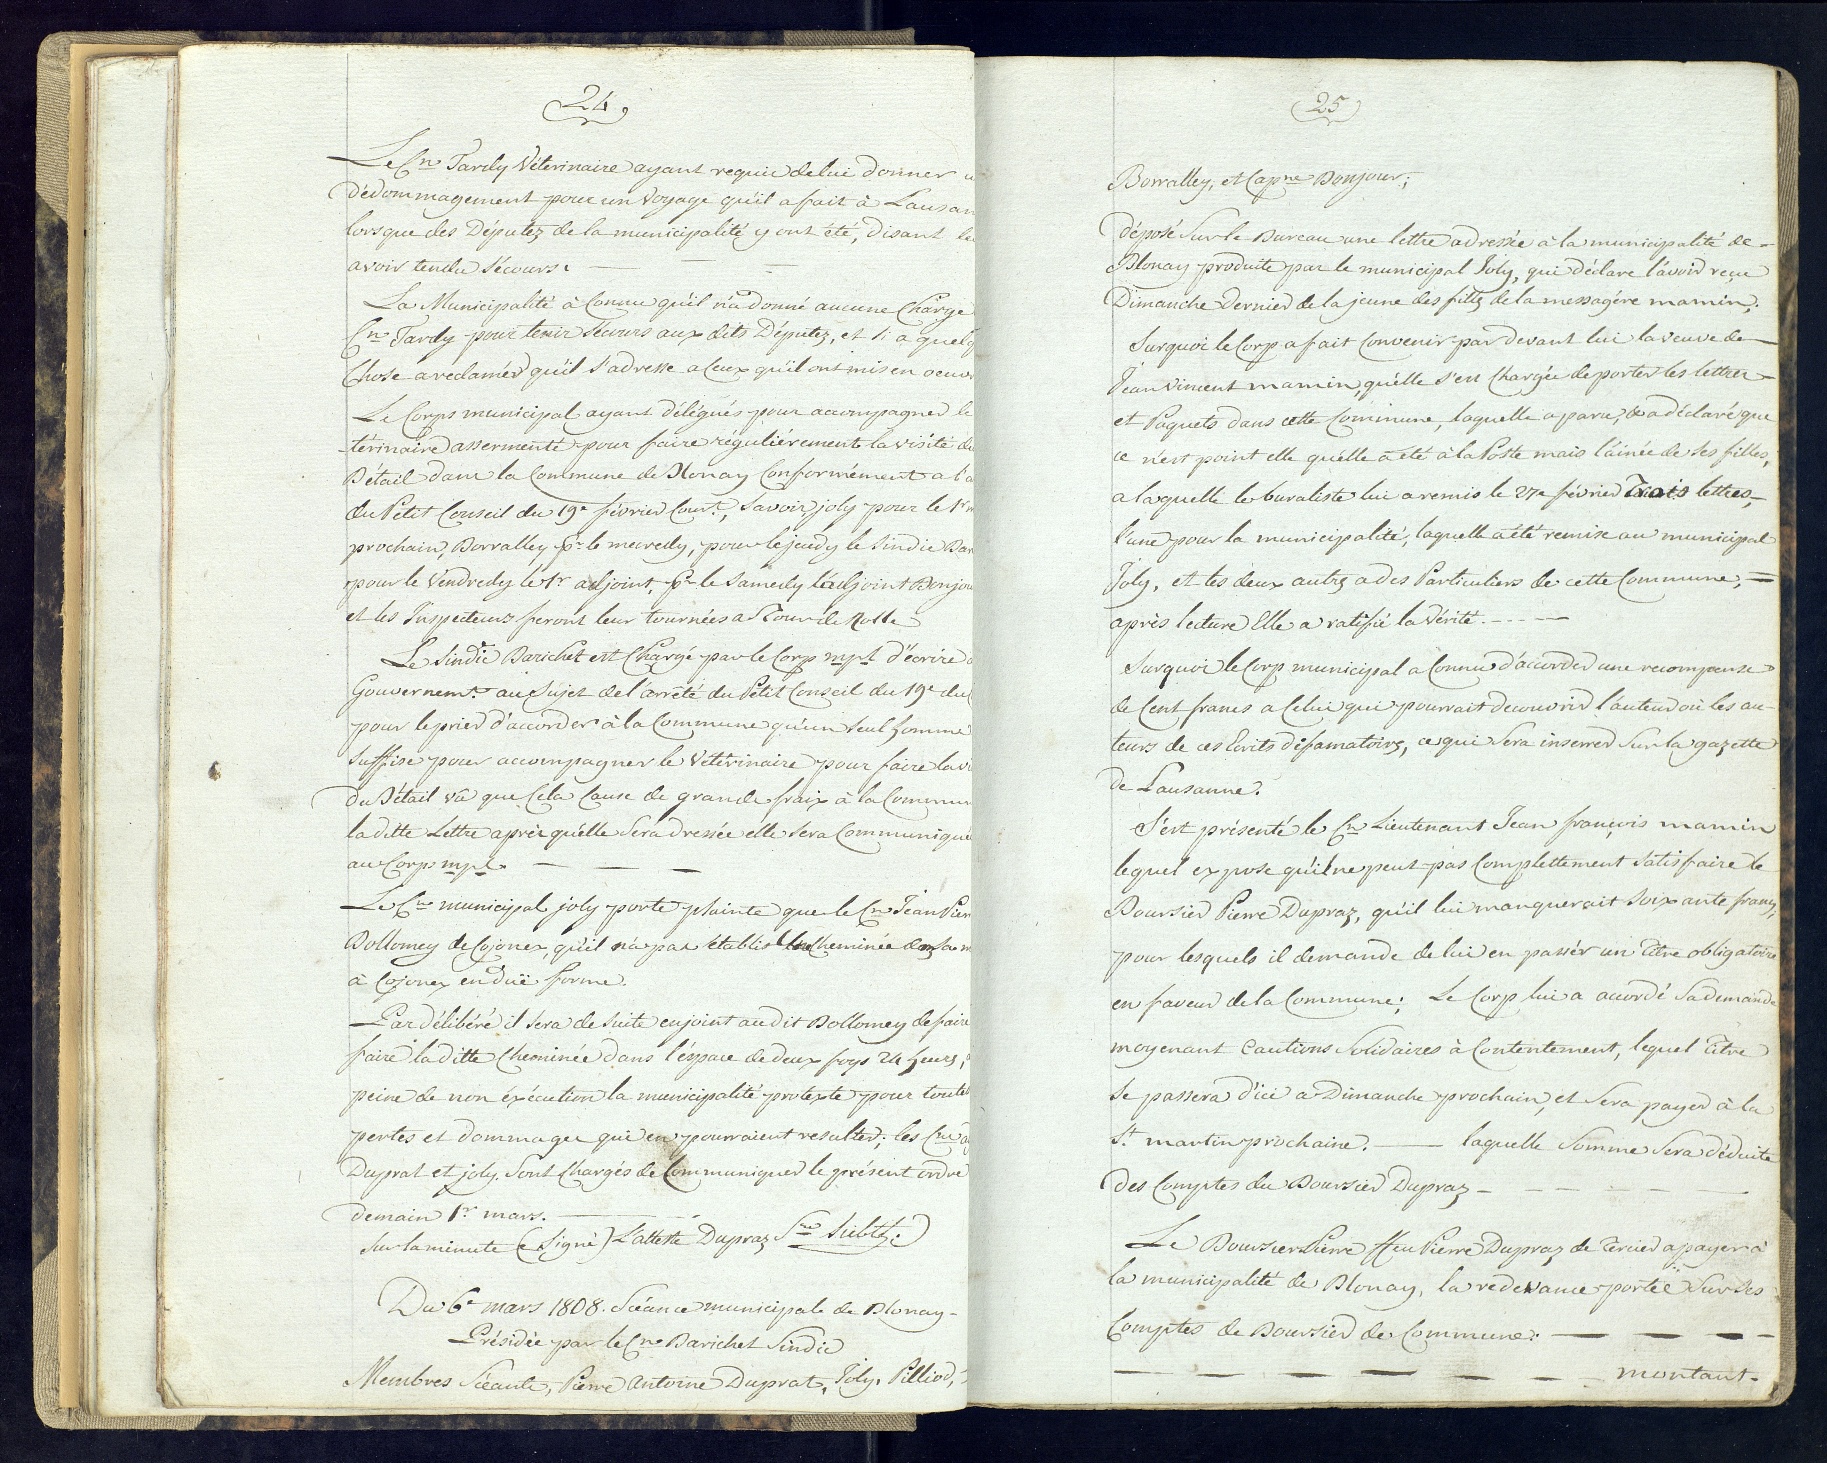 24
Le Cn Tardy Véterinaire ayant requis de lui donner
Dédommagement pour un Voyage qu'il a fait à Lausan
lorsque des Députez de la municipalité y ont été, Disant
avoir tendu sécours.
La Municipalité à Connu qu'il n'a donné aucune Charge
Cn Tardy pour tenir sécours aux dits Députez, et si a quelq
Chose a reclamér qu'il s'adresse a Ceux qu'il ont mis en oeuvr
Le Corps municipal ayant délégués pour accompagner le
-térinaire assermenté pour faire régulièrement la visite du
Bétail dans la Commune de Blonay Conformément a l'a
du Petit Conseil du 19e février Court, Savoir joly pour le 1r m
prochain, Borralley pr le mecredy, pour le jeudy le Sindic Bar
pour le Vendredy le 1r adjoint, pr le Samedy l'adjoint Bonjou
et les Inspecteurs feront leur tournées a Tour de Rolle
Le Sindic Barichet est Chargé par le Corp mpl d'écrire a
Gouvernemt au Sujet de l'arrêté du Petit Conseil du 19e du
pour le prier d'accorder à la Commune qu'un seul homme
suffise pour accompagner le Véterinaire pour faire la vi
du Bétail vû que Cela Cause de grande fraix à la Commun
la ditte Lettre après qu'elle Sera dressée elle sera Communiqué
au Corps mpl.
Le Cn municipal joly porte plainte que le Cn Jean Pier
Dollomey de Cojonex, qu'il n'a pas établis Une Cheminée dans sa m
à Cojonex en duë forme.
Par délibéré il sera de suite enjoint au dit Dollomey de faire
faire la ditte Cheminée dans l'éspace de deux foys 24 heures,
peine de non éxécution la municipalité proteste pour toutes
pertes et dommages qui en pourraient resulter; les Cns
Duprat et joly Sont Chargés de Communiquer le présent ordre
demain 1r mars.
Sur la minute (Signé) L'atteste Dupraz Sre Subst.)
Du 6e mars 1808. Séance municipale de Blonay-
Présidée par le Cn Barichet Sindic
Membres Séants, Pierre Antoine Duprat, Joly, Pilliod,
25
Borralley, et Capne Bonjour;
déposé sur le Bureau une lettre adressée à la municipalité de-
Blonay produite par le municipal Joly, qui déclare l'avoir reçu
Dimanche Dernier de la jeune des filles de la messagère mamin;
Surquoi le Corp a fait Convenir par devant lui la veuve de
Jean Vincent mamin, qu'elle s'est Chargée de porter les lettres
et Paquets dans cette Commune, laquelle a paru, & a déclaré que
ce n'est point elle qu'elle a été à la Poste mais l'ainée de ses filles,
a laquelle le buraliste lui a remis le 27e février Trois lettres,
l'une pour la municipalité, laquelle a été remise au municipal
Joly, et les deux autres a des Particuliers de cette Commune;
après lecture Elle a ratifié la Vérité.
Surquoi le Corp municipal a Connu d'accorder une recompense
de Cent francs a Celui qui pourrait decouvrir l'auteur où les au-
teurs de ces Ecrits difamatoires, ce qui Sera inserrer Sur la gazette
de Lausanne.
S'est présenté le Cn Lieutenant Jean françois mamin
lequel expose qu'il ne peut pas Complettement Satisfaire le
Boursier Pierre Dupraz, qu'il lui manquerait soixante francs,
pour lesquels il demande de lui en passér un titre obligatoire
en faveur de la Commune; Le Corp lui a accordé Sa demande
moyenant Cautions Solidaires à Contentement, lequel Titre
se passera d'ici a Dimanche prochain, et Sera payer à la
St. martin prochaine. laquelle Somme Sera déduite
des Comptes du Boursier Dupraz
Le Boursier Pierre ffeu Pierre Dupraz de Tercier a payer à
la municipalité de Blonay, la redevance portée Sur Ses
Comptes de Boursier de Commune:
montant-